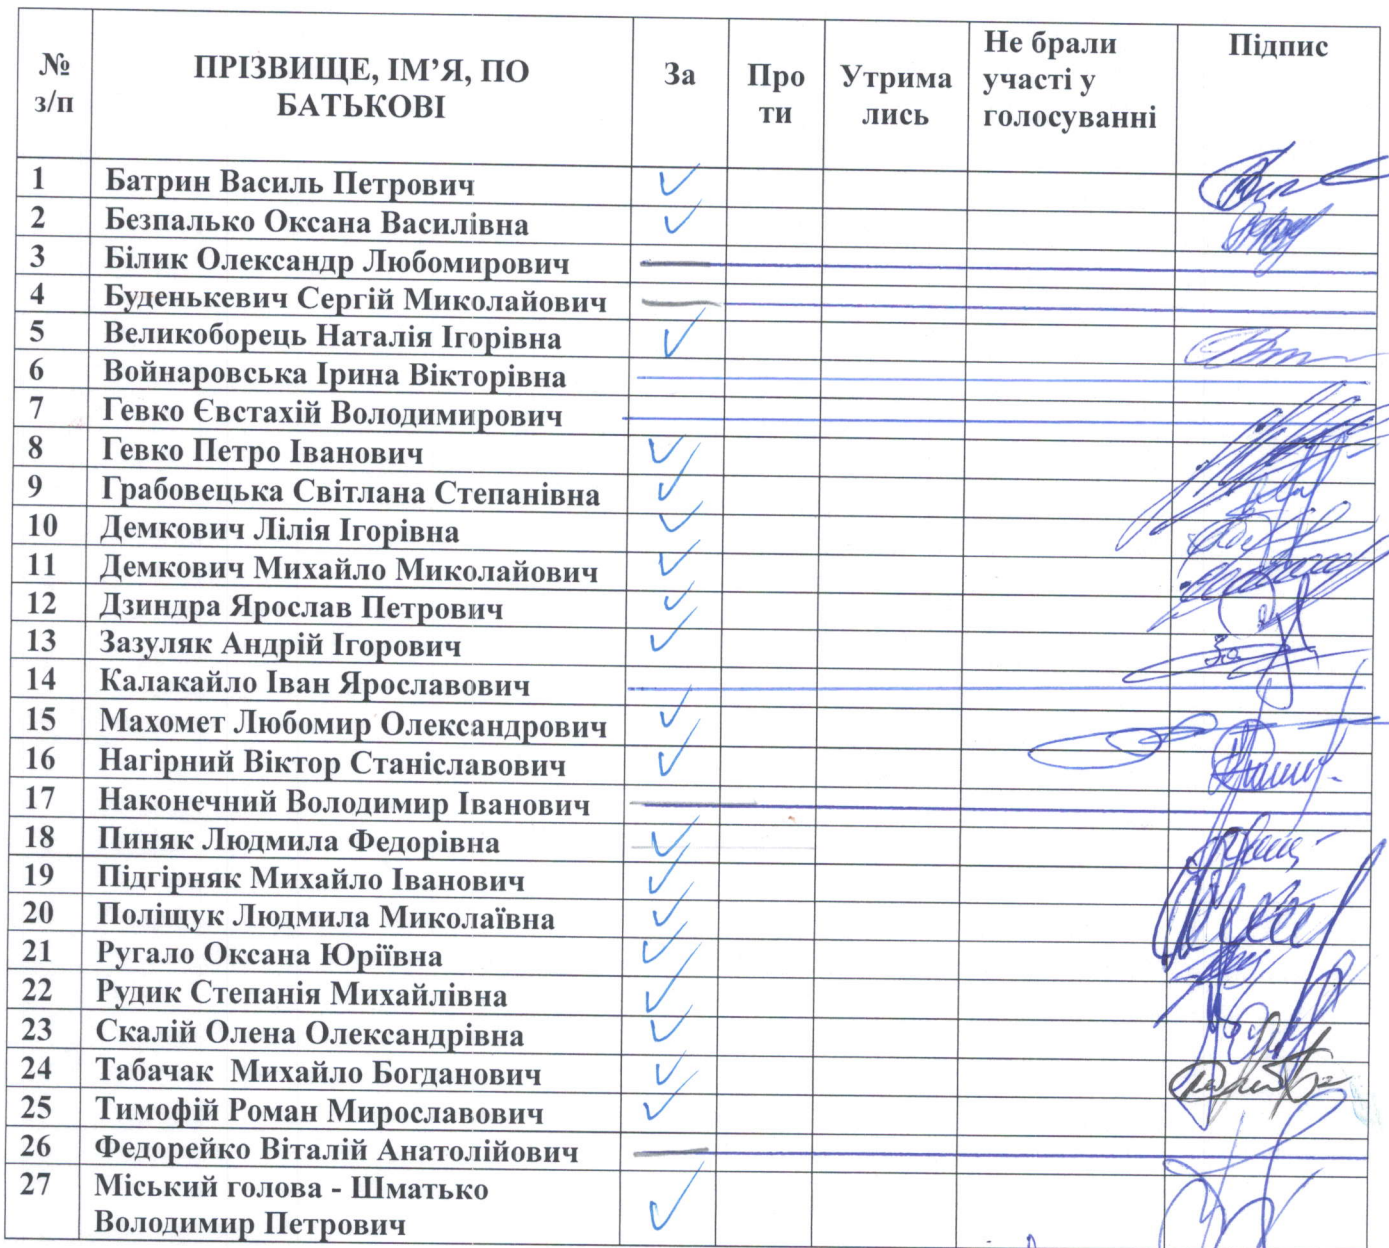 № з/п ПРІЗВИЩЕ, ІМ’Я, ПО БАТЬКОВІ За Про ти Утрима лись Не брали участі у голосуванні Підпис
1 Батрин Василь Петрович ✓
2 Безпалько Оксана Василівна ✓
3 Білик Олександр Любомирович
4 Буденькевич Сергій Миколайович
5 Великоборець Наталія Ігорівна ✓
6 Войнаровська Ірина Вікторівна
7 Гевко Євстахій Володимирович
8 Гевко Петро Іванович ✓
9 Грабовецька Світлана Степанівна ✓
10 Демкович Лілія Ігорівна ✓
11 Демкович Михайло Миколайович ✓
12 Дзиндра Ярослав Петрович ✓
13 Зазуляк Андрій Ігорович ✓
14 Калакайло Іван Ярославович
15 Махомет Любомир Олександрович ✓
16 Нагірний Віктор Станіславович ✓
17 Наконечний Володимир Іванович
18 Пиняк Людмила Федорівна ✓
19 Підгірняк Михайло Іванович ✓
20 Поліщук Людмила Миколаївна ✓
21 Ругало Оксана Юріївна ✓
22 Рудик Степанія Михайлівна ✓
23 Скалій Олена Олександрівна ✓
24 Табачак Михайло Богданович ✓
25 Тимофій Роман Мирославович ✓
26 Федорейко Віталій Анатолійович
27 Міський голова - Шматько
Володимир Петрович ✓